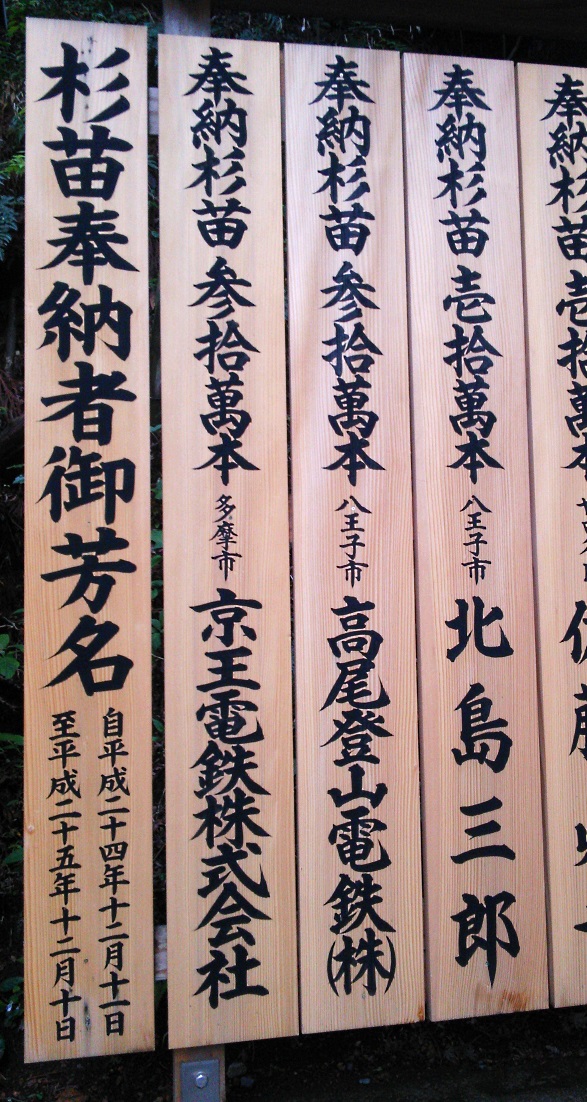 杉苗奉納者御芳名
自平成二十四年十二月十一日
至平成二十五年十二月十日
奉納杉苗 参拾萬本 多摩市 京王電鉄株式会社
奉納杉苗 参拾萬本 八王子市 高尾登山電鉄(株)
奉納杉苗 壱拾萬本 八王子市 北島三郎
奉納杉苗 壱拾萬本